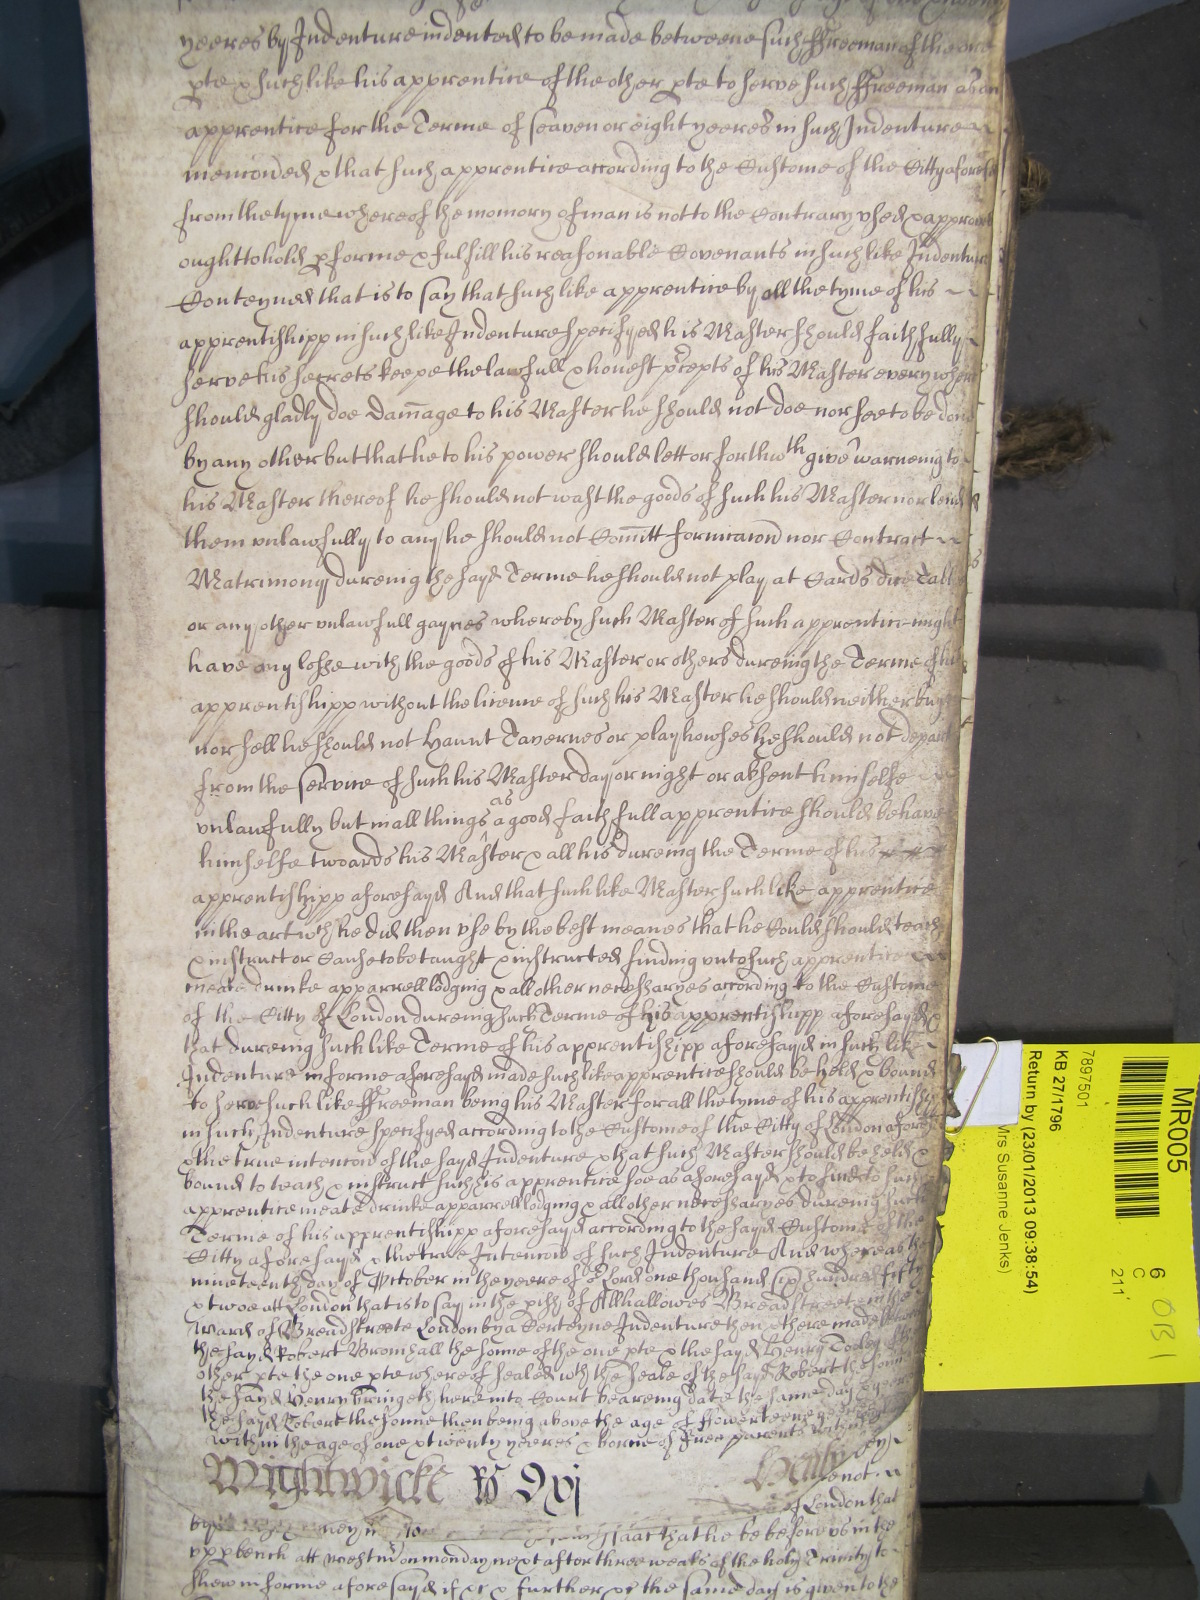 yeeres by Indenture indented to be made betweene such ffreeman of the one
pte & such like his apprentice of the other pte to serve such ffreeman as an
apprentice for the Terme of seaven or eight yeeres in such Indenture
menconded & that such apprentice according to the Custome of the Citty aforesd
from the tyme whereof the memory of man is not to the Contrary vsed & approved
ought to hold pforme & fulfill his reasonable Covenants in such like Indenture
Conteyned that is to say that such like apprentice by all the tyme of his
apprentishipp in such like Indenture specifyed his Master should faithfully
serve his secrets keepe the lawfull & honest pcepts of his Master every where
should gladly doe Damage to his Master he should not doe nor see to be done
by any other but that he to his power should lett or forthwth give warneing to
his Master thereof he should not wast the goods of such his Master nor lend
them vnlawfully to any he should not Comitt fornicacon nor Contract
Matrimony dureing the sayd Terme he should not play at Cards dice Tables
or any other vnlawfull gaymes whereby such Master of such apprentice might
have any losse with the goods of his Master or others dureing the Terme of his
apprentishipp without the licence of such his Master he should neither buy
nor sell he should not Haunt Tavernes or playhowses he should not depart
from the service of such his Master day or night or absent himselfe
vnlawfully but in all things as a good faithfull apprentice should behave
himselfe twoards his Master & all his dureing the Terme of his
apprentishipp aforesayd And that such like Master such like apprentice
in the art wch he did then vse by the best meanes that he Could should teach
& instruct or Cause to be taught & instructed finding vnto such apprentice
meate drinke apparrell lodging & all other necessaryes according to the Custome
of the Citty of London dureing such Terme of his apprentishipp aforesayd &
that dureing such like Terme of his apprentishipp aforesayd in such like
Indenture in forme aforesayd made such like apprentice should be held & bound
to serve such like ffreeman being his Master for all the tyme of his apprentishipp
in such Indenture specifyed according to the Custome of the Citty of London aforesd
& the true intencon of the sayd Indenture & that such Master should be held &
bound to teach & instruct such his apprentice soe as aforesayd & to finde to such
apprentice meate drinke apparrell lodging & all other necessaryes dureing such
Terme of his apprentishipp aforesayd according to the sayd Custome of the
Citty aforesayd & the true Intencon of such Indenture And whereas the
nineteenth day of October in the yeere of or Lord one thousand six hundred fifty
& twoe att London that is to say in the pish of Allhallowes Breadstreete in the
Ward of Breadstreete London by a Certeyne Indenture then & there made betweene
the sayd Robert Bromhall the sonne of the one pte & the sayd Henry Tooley of the
other pte the one pte whereof sealed wth the seale of the sayd Robert the sonne
the sayd Henry bringeth here into Court beareing date the same day & yeere
the sayd Robert the sonne then being above the age of fowerteene yeeres &
within the age of one & twenty yeeres & borne of free parents
Wightwicke rs Oxj
Henry
not
of London that
Isaac that he be before vs in the
vpp bench att westmr on monday next after three weeks of the holy Trinity to
shew in forme aforesayd if &c & further &c the same day is given to the
MR005
7897501
KB 27/1796
Return by (23/01/2013 09:38:54)
Mrs Susanne Jenks)
6
C
211'